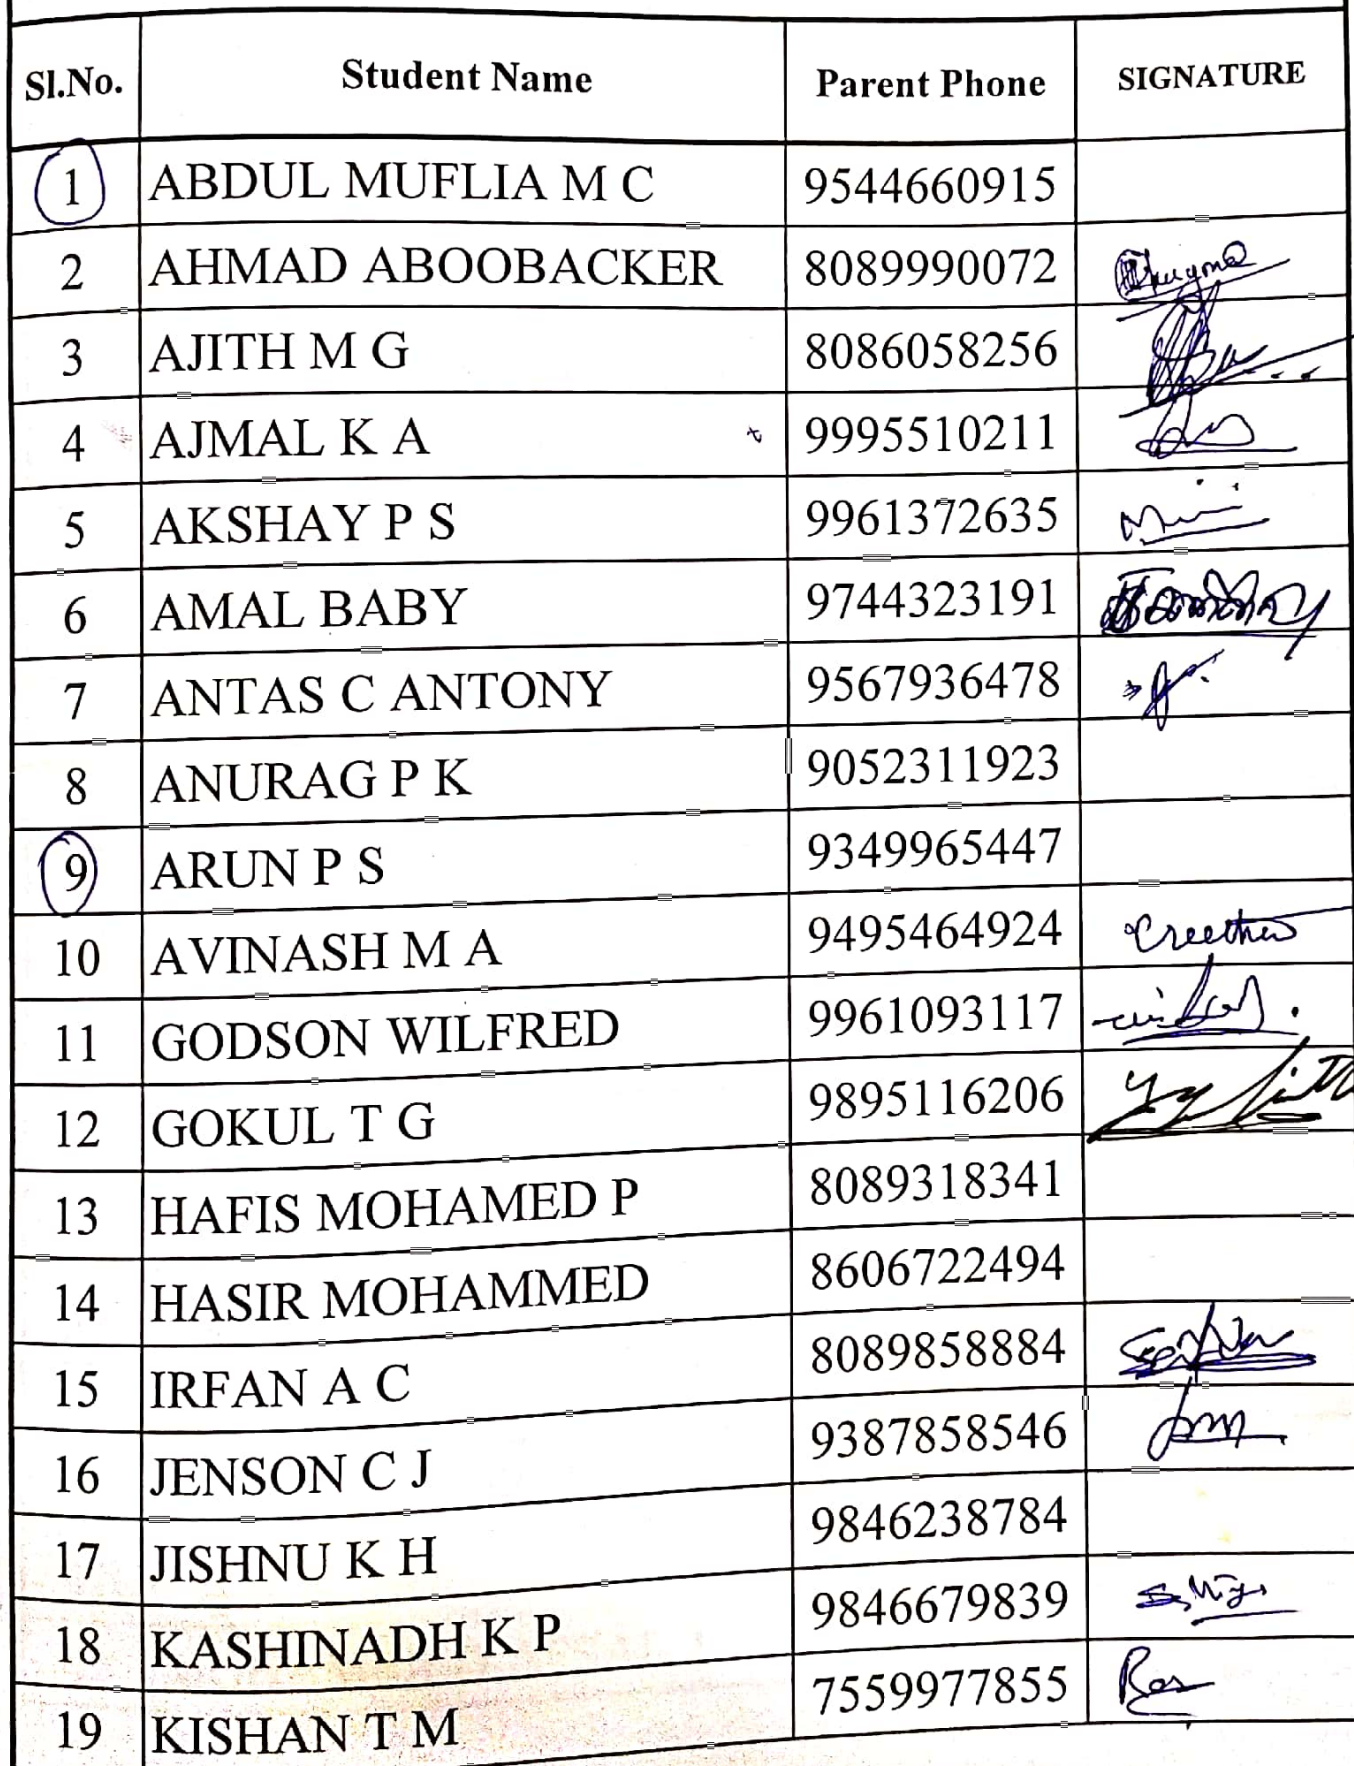 Sl.No. Student Name Parent Phone SIGNATURE
1 ABDUL MUFLIA M C 9544660915
2 AHMAD ABOOBACKER 8089990072
3 AJITH M G 8086058256
4 AJMAL K A 9995510211
5 AKSHAY P S 9961372635
6 AMAL BABY 9744323191
7 ANTAS C ANTONY 9567936478
8 ANURAG P K 9052311923
9 ARUN P S 9349965447
10 AVINASH M A 9495464924
11 GODSON WILFRED 9961093117
12 GOKUL T G 9895116206
13 HAFIS MOHAMED P 8089318341
14 HASIR MOHAMMED 8606722494
15 IRFAN A C 8089858884
16 JENSON C J 9387858546
17 JISHNU K H 9846238784
18 KASHINADH K P 9846679839
19 KISHAN T M 7559977855